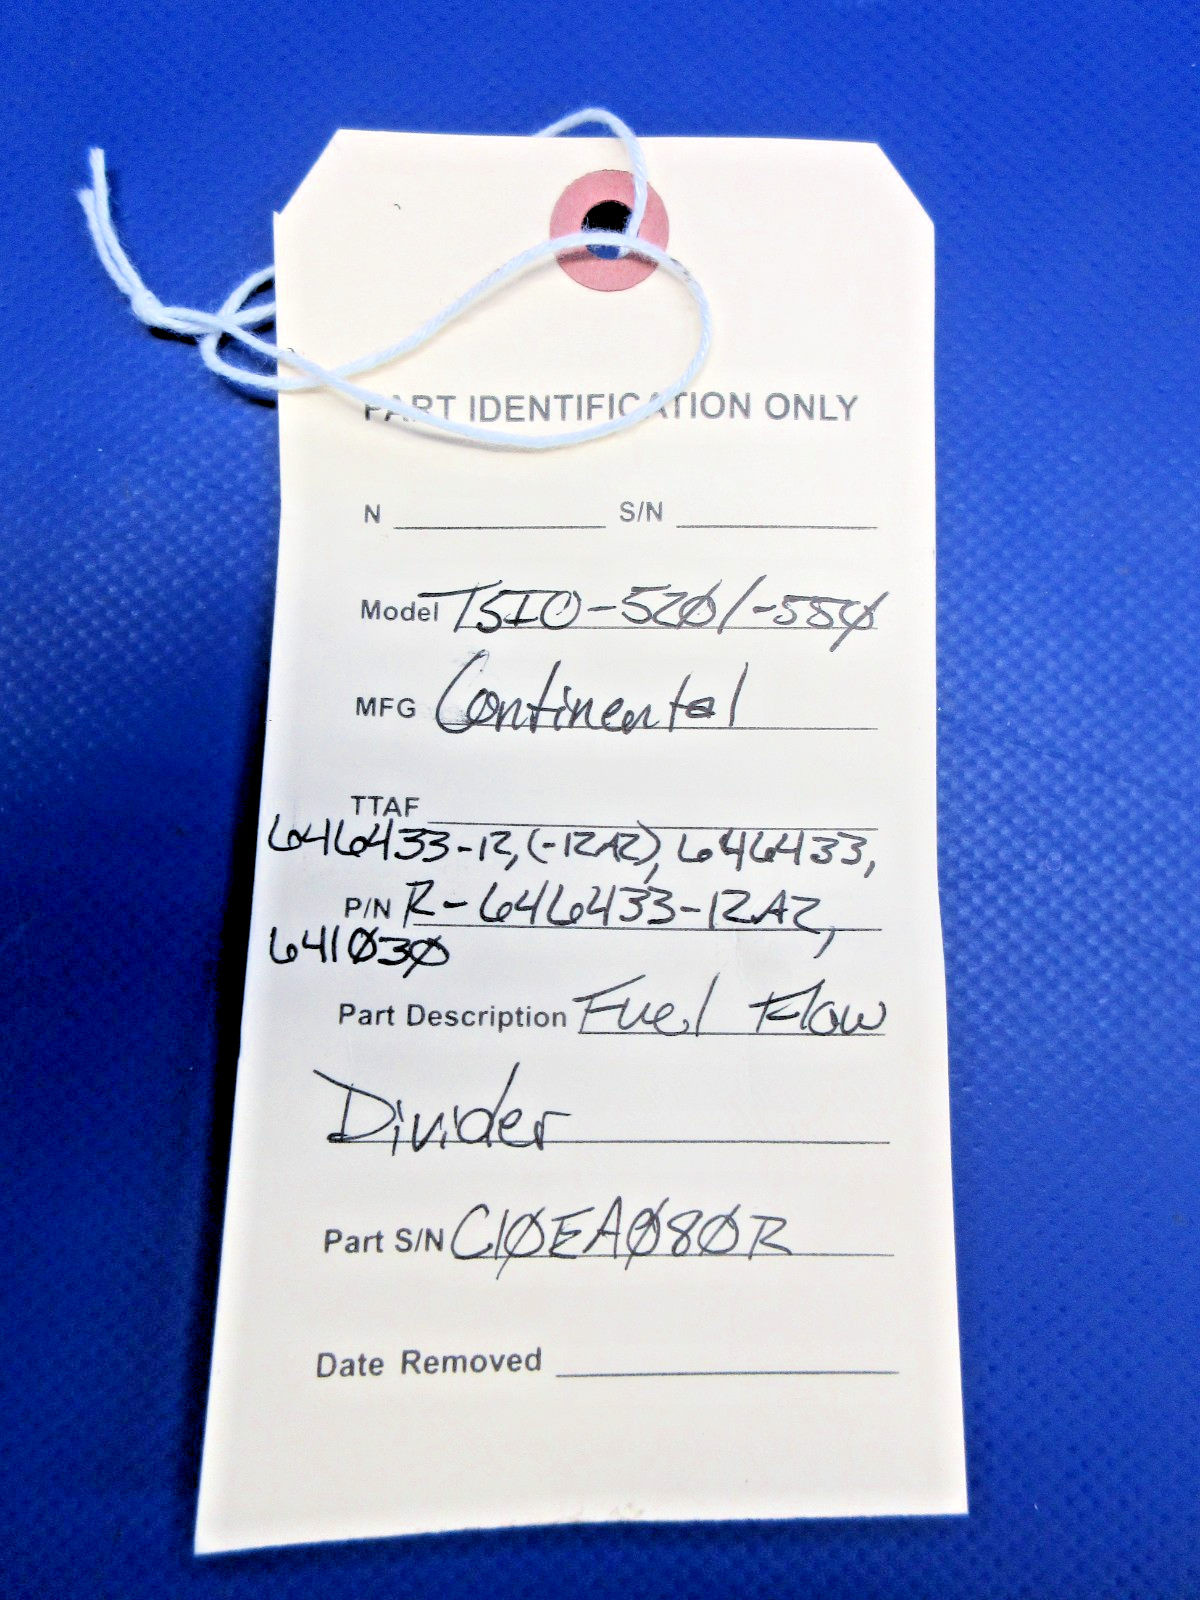 PART IDENTIFICATION ONLY
N S/N
Model TSIO-520/-550
MFG Continental
TTAF
646433-12, (-12A2), 646433,
P/N R-646433-12A2,
641030
Part Description Fuel Flow
Divider
Part S/N C10EA080R
Date Removed